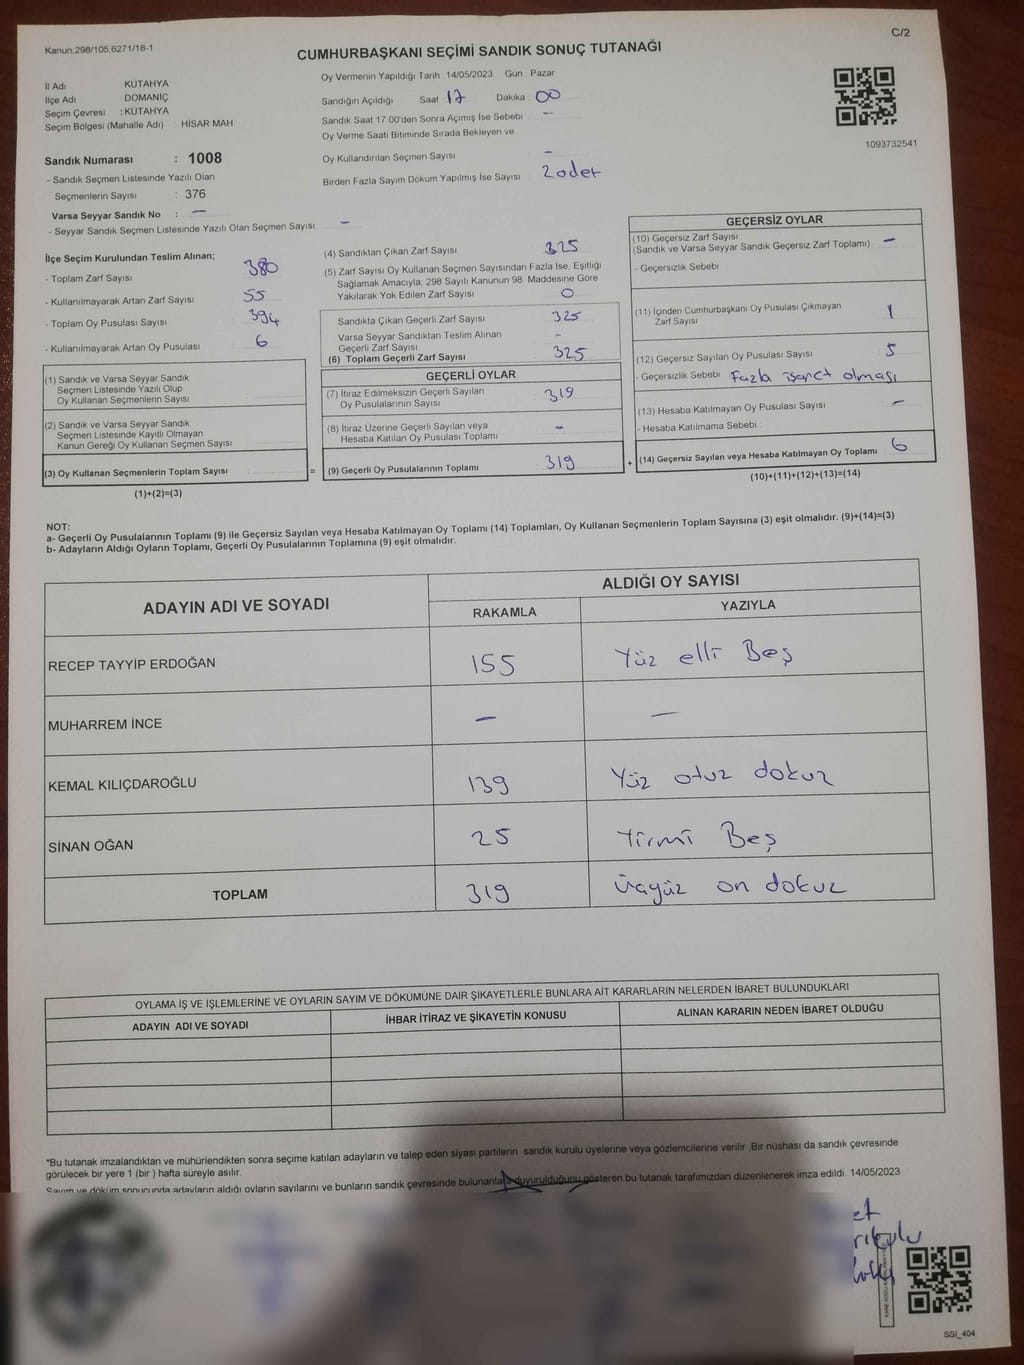 Kanun.298/105;6271/18-1
C/2
CUMHURBAŞKANI SEÇİMİ SANDIK SONUÇ TUTANAĞI
İl Adı KÜTAHYA
İlçe Adı : DOMANİÇ
Seçim Çevresi : KÜTAHYA
Seçim Bölgesi (Mahalle Adı) : HİSAR MAH
Sandık Numarası : 1008
- Sandık Seçmen Listesinde Yazılı Olan
Seçmenlerin Sayısı : 376
Varsa Seyyar Sandık No : —
- Seyyar Sandık Seçmen Listesinde Yazılı Olan Seçmen Sayısı: —
Oy Vermenin Yapıldığı Tarih 14/05/2023 Gün : Pazar
Sandığın Açıldığı Saat 17 Dakika : 00
Sandık Saat 17:00'den Sonra Açımış İse Sebebi —
Oy Verme Saati Bitiminde Sırada Bekleyen ve
Oy Kullandırılan Seçmen Sayısı —
Birden Fazla Sayım Döküm Yapılmış İse Sayısı 2 adet
1093732541
İlçe Seçim Kurulundan Teslim Alınan;
- Toplam Zarf Sayısı 380
- Kullanılmayarak Artan Zarf Sayısı 55
- Toplam Oy Pusulası Sayısı 394
- Kullanılmayarak Artan Oy Pusulası 6
(1) Sandık ve Varsa Seyyar Sandık
Seçmen Listesinde Yazılı Olup
Oy Kullanan Seçmenlerin Sayısı
(2) Sandık ve Varsa Seyyar Sandık
Seçmen Listesinde Kayıtlı Olmayan
Kanun Gereği Oy Kullanan Seçmen Sayısı
(3) Oy Kullanan Seçmenlerin Toplam Sayısı =
(1)+(2)=(3)
(4) Sandıktan Çıkan Zarf Sayısı 325
(5) Zarf Sayısı Oy Kullanan Seçmen Sayısından Fazla İse, Eşitliği
Sağlamak Amacıyla; 298 Sayılı Kanunun 98. Maddesine Göre
Yakılarak Yok Edilen Zarf Sayısı 0
Sandıkta Çıkan Geçerli Zarf Sayısı 325
Varsa Seyyar Sandıktan Teslim Alınan
Geçerli Zarf Sayısı -
(6) Toplam Geçerli Zarf Sayısı 325
GEÇERLİ OYLAR
(7) İtiraz Edilmeksizin Geçerli Sayılan
Oy Pusulalarının Sayısı 319
(8) İtiraz Üzerine Geçerli Sayılan veya
Hesaba Katılan Oy Pusulası Toplamı -
(9) Geçerli Oy Pusulalarının Toplamı 319 +
GEÇERSİZ OYLAR
(10) Geçersiz Zarf Sayısı
(Sandık ve Varsa Seyyar Sandık Geçersiz Zarf Toplamı) —
- Geçersizlik Sebebi
(11) İçinden Cumhurbaşkanı Oy Pusulası Çıkmayan
Zarf Sayısı 1
(12) Geçersiz Sayılan Oy Pusulası Sayısı 5
- Geçersizlik Sebebi Fazla işaret olması
(13) Hesaba Katılmayan Oy Pusulası Sayısı —
- Hesaba Katılmama Sebebi
(14) Geçersiz Sayılan veya Hesaba Katılmayan Oy Toplamı 6
(10)+(11)+(12)+(13)=(14)
NOT:
a- Geçerli Oy Pusulalarının Toplamı (9) ile Geçersiz Sayılan veya Hesaba Katılmayan Oy Toplamı (14) Toplamları, Oy Kullanan Seçmenlerin Toplam Sayısına (3) eşit olmalıdır. (9)+(14)=(3)
b- Adayların Aldığı Oyların Toplamı, Geçerli Oy Pusulalarının Toplamına (9) eşit olmalıdır.
ADAYIN ADI VE SOYADI
ALDIĞI OY SAYISI
RAKAMLA YAZIYLA
RECEP TAYYİP ERDOĞAN 155 Yüz elli Beş
MUHARREM İNCE — —
KEMAL KILIÇDAROĞLU 139 Yüz otuz dokuz
SİNAN OĞAN 25 Yirmi Beş
TOPLAM 319 üçyüz on dokuz
OYLAMA İŞ VE İŞLEMLERİNE VE OYLARIN SAYIM VE DÖKÜMÜNE DAİR ŞİKAYETLERLE BUNLARA AİT KARARLARIN NELERDEN İBARET BULUNDUKLARI
ADAYIN ADI VE SOYADI İHBAR İTİRAZ VE ŞİKAYETİN KONUSU ALINAN KARARIN NEDEN İBARET OLDUĞU
*Bu tutanak imzalandıktan ve mühürlendikten sonra seçime katılan adayların ve talep eden siyasi partilerin sandık kurulu üyelerine veya gözlemcilerine verilir. Bir nüshası da sandık çevresinde
görülecek bir yere 1 (bir ) hafta süreyle asılır.
Sayım ve döküm sonucunda adayların aldığı oyların sayılarını ve bunların sandık çevresinde bulunanlara duyurulduğunu gösteren bu tutanak tarafımızdan düzenlenerek imza edildi. 14/05/2023
SSI_404